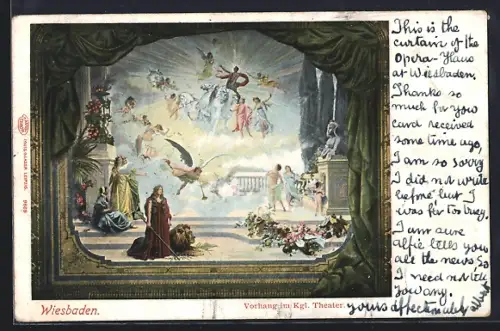 This is the
curtain of the
Opera-Haus
at Wiesbaden.
Thanks so
much for your
card received
some time ago,
I am so sorry
I did not write
before but I
was far too busy.
I am sure
alfie tells you
all the news so
I need not tell
you any.
yours affectionately
Wiesbaden.
Vorhang im Kgl. Theater.